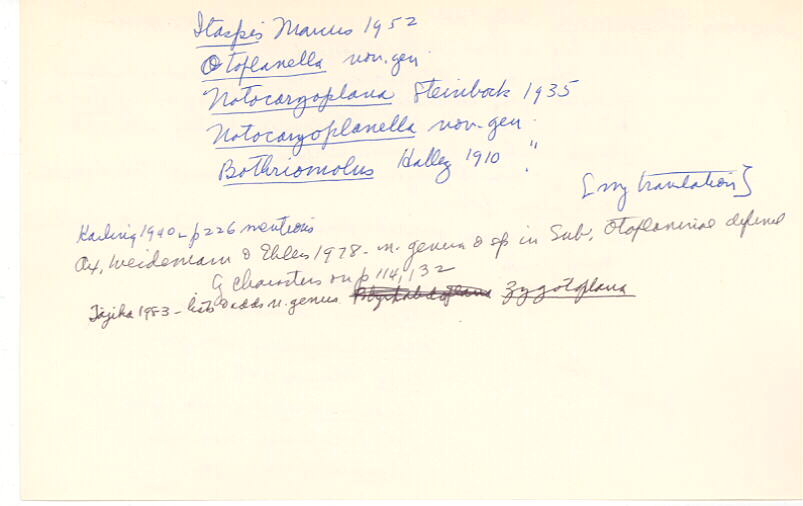 Itaspis Marcus 1952
Otoplanella nov. gen.
Notocaryoplana Steinbock 1935
Notocaryoplanella nov. gen.
Bothriomolus Hallez 1910 "
[my translation]
Karling 1940 - p 226 mentions
Ax, Weidemann & Ehlers 1978 - n. genera & sp in Sub. Otoplaninae defined
G characters on p 114, 132
Tajika 1983 - lists & adds n. genus Zygotoplana